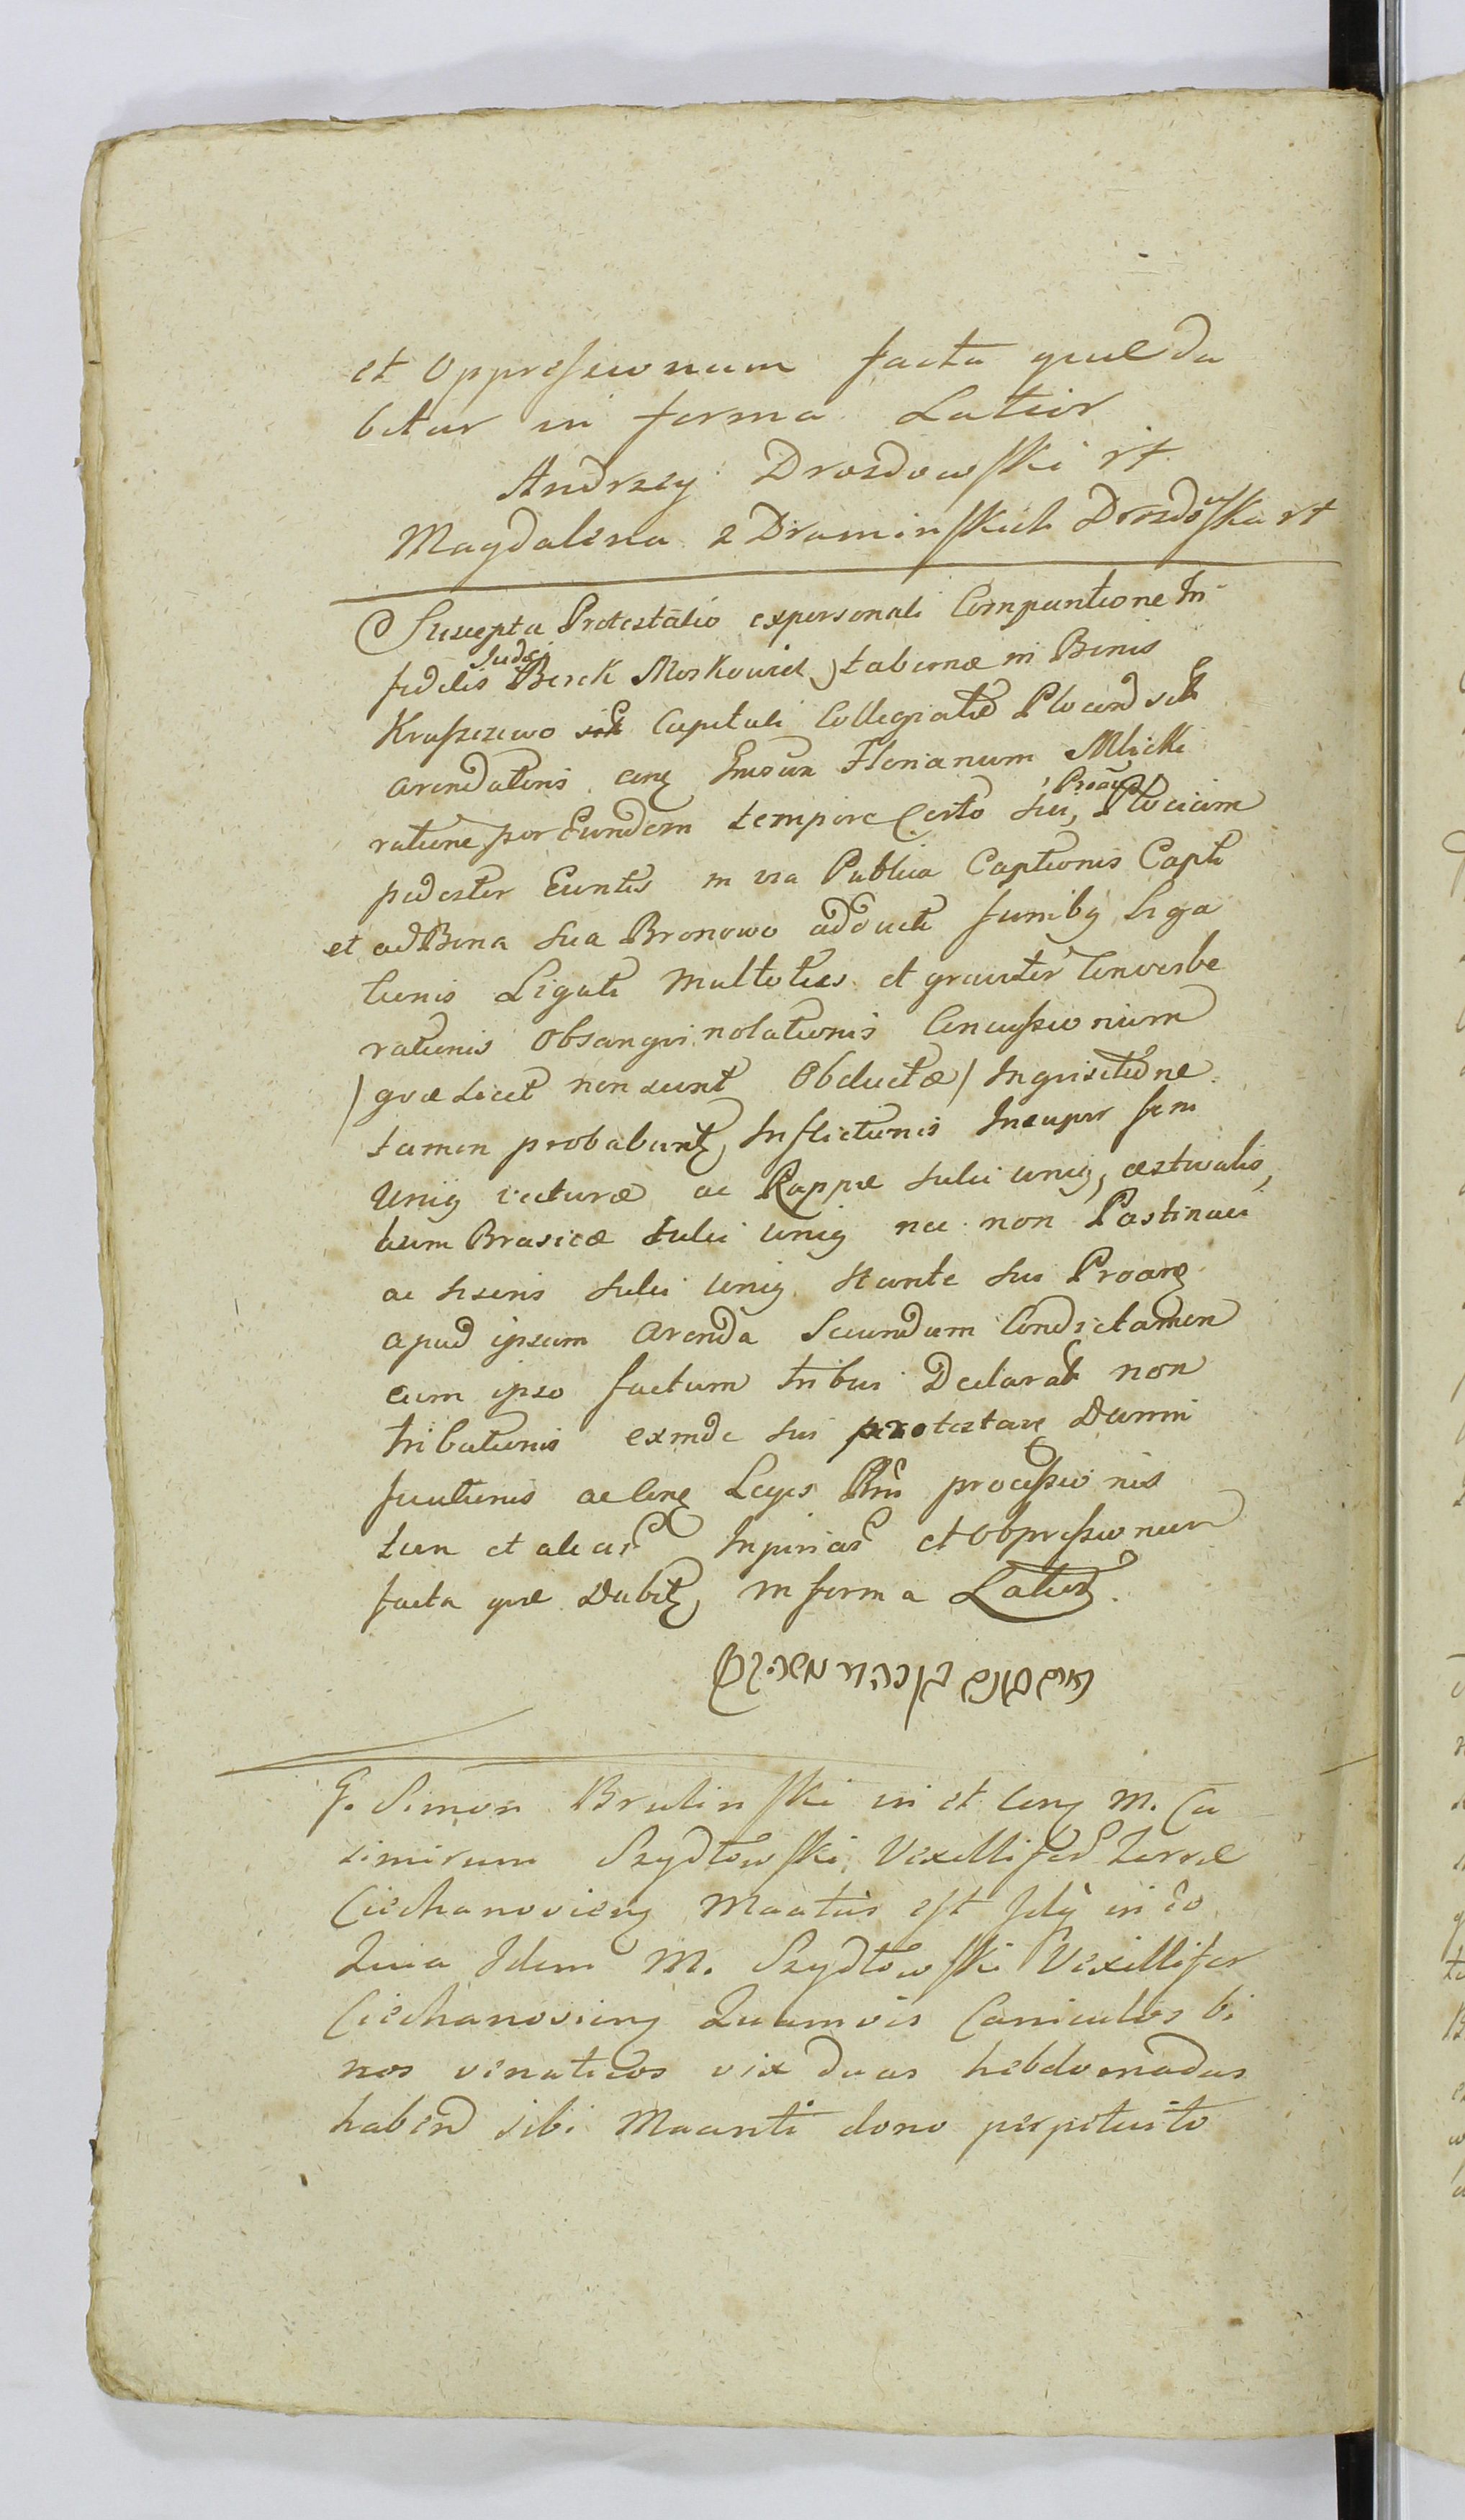 et Oppressionum facta quæ da
bitur in forma Latior
Andrzey Drozdowski rt
Magdalena z Dramińskich Drozdowska rt
Suscepta Protestatio ex personali Comparitione In
fidelis Judæi Berek Moskowicz tabernæ in Bonis
Kraszewo Capituli Collegiatæ Plocen
arendatoris cong Florianum Mlicki
ratione per Eundem tempore Certo sui, Proãn Plociam
pedester Euntis in via Publica Captionis Capti
et ad Bona sua Bronowo adducti funibg Liga
tionis Ligati multoties et graviter Converbe
rationis Obsanguinolationis Concussionum
/ quæ licet non sunt Obductæ / Inquisitione
tamen probabuntz, Inflictionis Insuper fim
Unig vecturæ ac Rappæ sulci unig, æstivalis,
tum Brasicæ sulci unig nec non Pastinaci
ac siseris sulci unig stante sui Proang
apud ipsum arenda Secundum Condictamen
cum ipso factum tribui Declarat non
tributionis exinde sui protestang Damni
ficationis ac Cong Leges Rni processionis
tum et alias Injurias et obpressionum
facta quæ Dabitz, in forma Latiori.
G. Simon Brulinski in et Cong M. Ca
simirum Szydłowski Vexilliferd Terræ
Ciechanovieng Maatus est Idq in eo
Quia Idem M. Szydłowski Vexillifer
Ciechanovieng Quamvis Caniculos bi
nos venaticos vix duas hebdomadas
habend sibi Maanti dono perpetuito